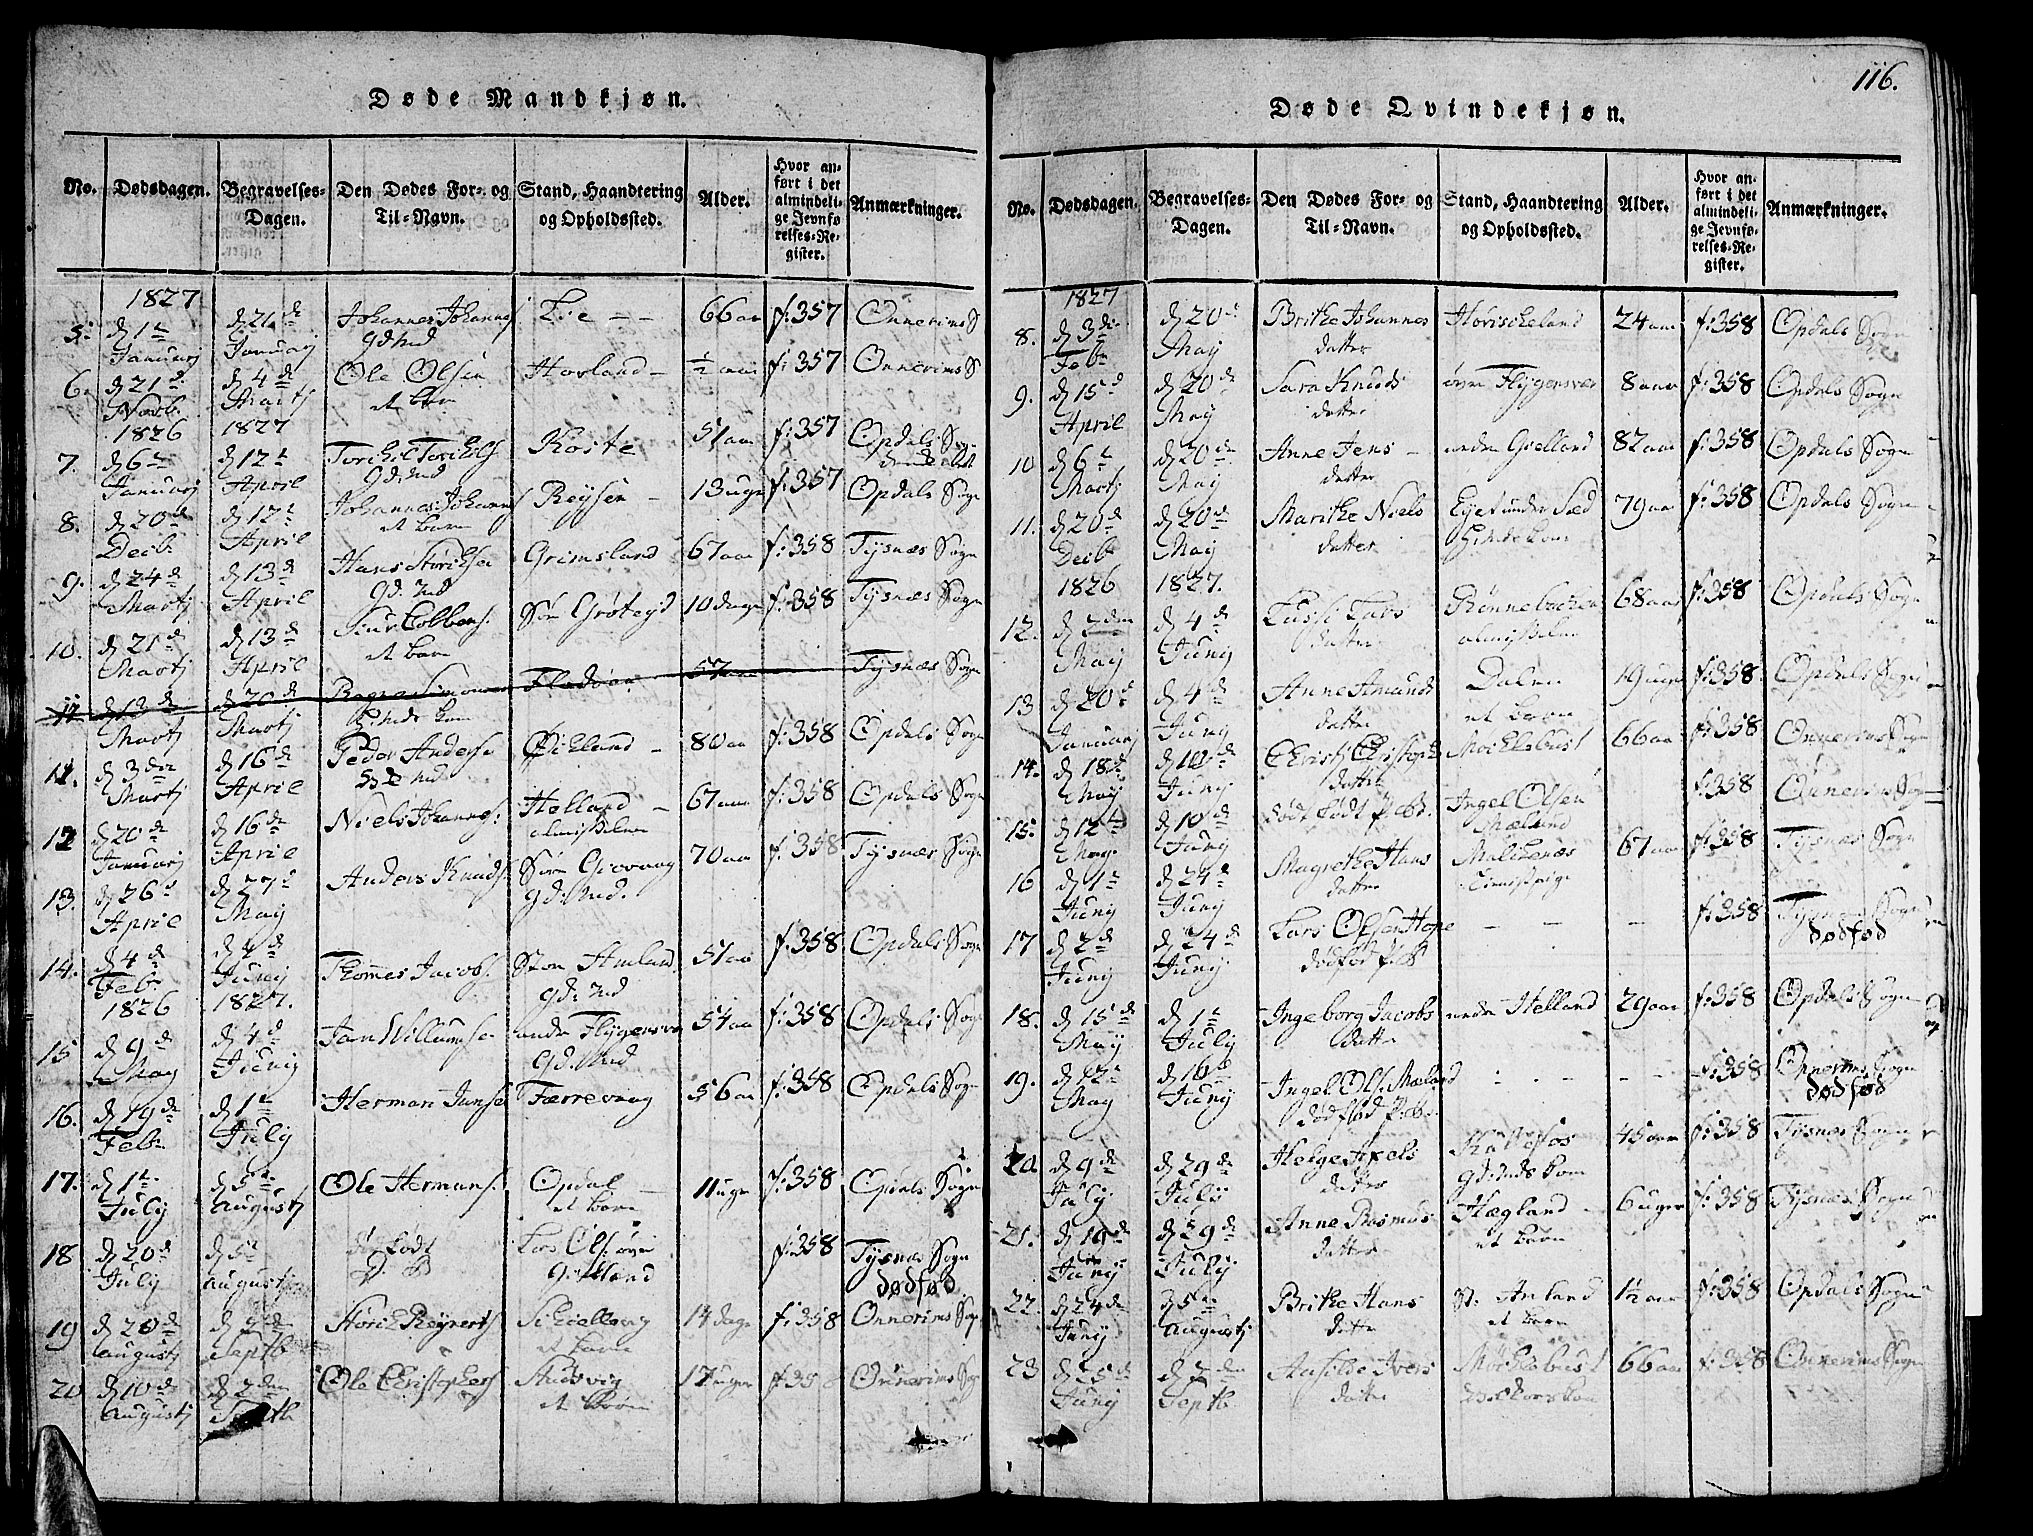 116.
Døde Mandkjøn.
No. Dødsdagen. Begravelses-Dagen. Den Dødes For- og Til-Navn. Stand, Haandtering og Opholdssted. Alder. Hvor anført i det almindelige Jevnførelses-Register. Anmærkninger.
1827
5. d 1te Januarj d 21de Januarj Johannes Johannes Gdmd Lie 66 aar f: 357 Onnerims S
6. d 21de Novb. d 4de Martj Ole Olsen et barn Hovland ½ aar f: 357 Onnerims S
1826 1827
7. d 6te Januarj d 12te April Torkil Torkils Gd: md Koste 51 aar f: 357 Opdals Sogn
8. d 20de Decb. d 12te April Johannes Johannes et barn Reysen 13 uger f: 357 Opdals Sogn
9. d 24de Martj d 13de April Hans Størksen gd: md Grimsland 67 aar f: 358 Tysnæs Sogn
10. d 21de Martj d 13de April et barn Sør Grøteyd 10 dage f: 358 Tysnæs Sogn
11 d 13de Martj d 20de Martj 57 aar Tysnæs Sogn
11. d 3den Martj d 16de April Peder Anders 80 aar f: 358 Opdals Sogn
12 d 20de Januarj d 16de April Niels Johannes: Helland 67 aar f: 358 Opdals Sogn
13. d 26de April d 27de May Anders Knuds gd: Md. 70 aar f: 358 Tysnæs Sogn
14. d 4de Feb. d 4de Junij Thomes Jacobs gd: md 51 aar f: 358 Opdals Sogn
1826 1827.
15 d 9de May d 4de Junij Jan Willumsen under Flygensvær gd: Md 54 aar f: 358 Opdals Sogn
16. d 19de Feb. d 1te July Herman Jansen Færrevaag 56 aar f: 358 Opdals Sogn
17. d 1te July d 5te Augustj Ole Hermans. Opdal et barn 11 uger f: 358 Opdals Sogn
18 d 20de July d 5te Augustj dødfødt Lars Ols: øvre Gielland f: 358 Tysnæs Sogn dødfød.
19 d 20de Augustj d 2den Septb Størk Reynerts et barn 14 dage f: 358 Onnerims Sogn
20 d 10de Augustj d 2den Septb Ole Christophers et barn 17 uger f: 358 Onnerims Sogn
Døde Qvindekjøn.
No. Dødsdagen. Begravelses-Dagen. Den Dødes For- og Til-Navn. Stand, Haandtering og Opholdssted. Alder. Hvor anført i det almindelige Jevnførelses-Register. Anmærkninger.
1827
8. d 3die Feb. d 20de May Brithe Johannes datter Høviskeland 24 aar f: 358 Opdals Sogn
9. d 15de April d 20de May Sara Knuds datter øvre Flygensvær 8 aar f: 358 Opdals Sogn
10 d 6te Martj d 20de May Anne Jens datter under Gielland 82 aar f: 358 Opdals Sogn
11. d 20de Decb. d 20de May Marithe Niels datter 79 aar f: 358 Opdals Sogn
1826 1827.
12. d 2den May d 4de Junij Lars datter Rønnebacken 68 aar f: 358 Opdals Sogn
13 d 20de Januarj d 4de Junij Anne Amunds datter Dalen et barn 19 uger f: 358 Opdals Sogn
14. d 18de May d 10de Junij Christi Christophers datter Møchlebust 66 aar f: 358 Onnerims Sogn
15. d 12te May d 10de Junij dødfødt P: b. Ingel Olsen Mæland f: 358 Onnerims Sogn
16 d 1te Junij d 24de Junij Magrethe Hans datter Malkenæs 67 aar f: 358 Tysnæs Sogn
17 d 2de Junij d 24de Junij Lars Olsen Hope dødfød P: B f: 358 Tysnæs Sogn dødfød
18. d 15de May d 1te July Ingeborg Jacobs datter under Helland 29 aar f: 358 Opdals Sogn
19. d 12te May d 10de Junij Ingel Ols: Mæland dødfød P: b. f: 358 Onnerims Sogn dødfød
20. d 9de July d 29de July Helge Axels datter 45 aar f: 358 Tysnæs Sogn
21. d 19de Junij d 29de July Anne Rasmus datter Hægland et barn 6 uger f: 358 Tysnæs Sogn
22. d 24de Junij d 5te Augustj Brithe Hans datter St: Amland et barn 1½ aar f: 358 Opdals Sogn
23 d 25de Junij d 2den Septb Ivers datter Møchlebust 66 aar f: 358 Onnerims Sogn